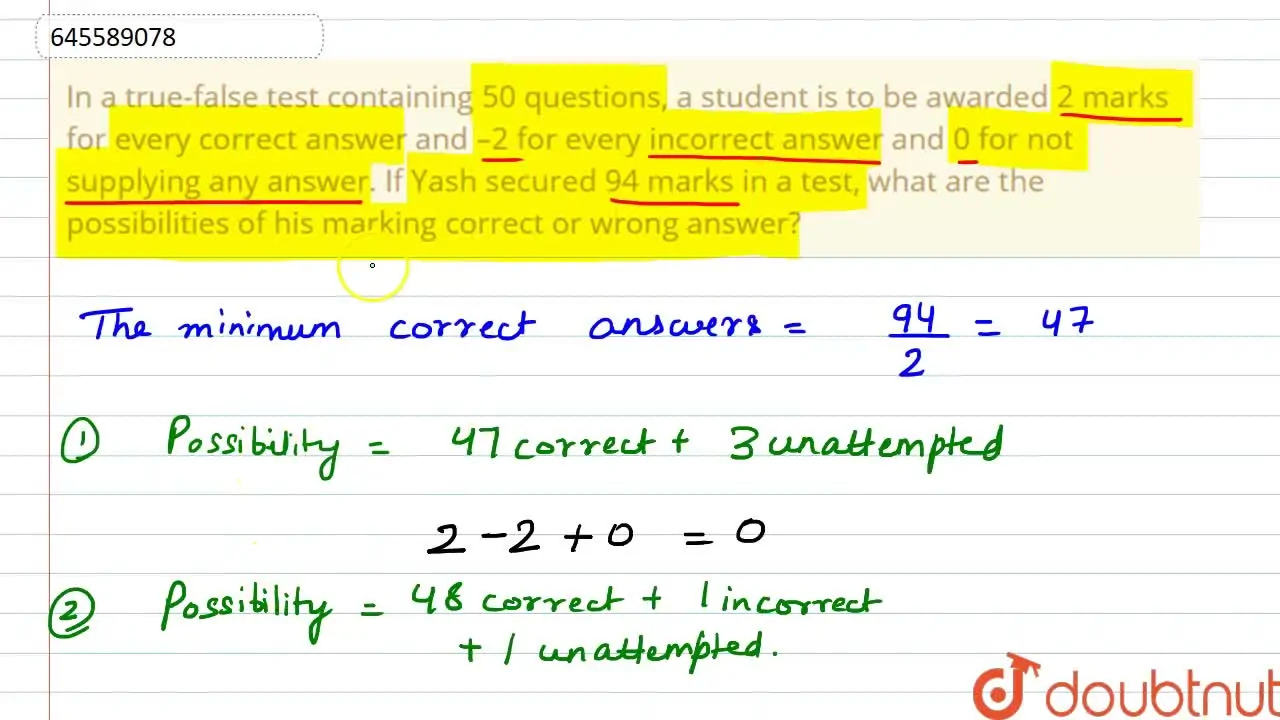 645589078
In a true-false test containing 50 questions, a student is to be awarded 2 marks
for every correct answer and –2 for every incorrect answer and 0 for not
supplying any answer. If Yash secured 94 marks in a test, what are the
possibilities of his marking correct or wrong answer?
The minimum correct answers = 94/2 = 47
① Possibility = 47 correct + 3 unattempted
2 - 2 + 0 = 0
② Possibility = 48 correct + 1 incorrect
+ 1 unattempted.
doubtnut